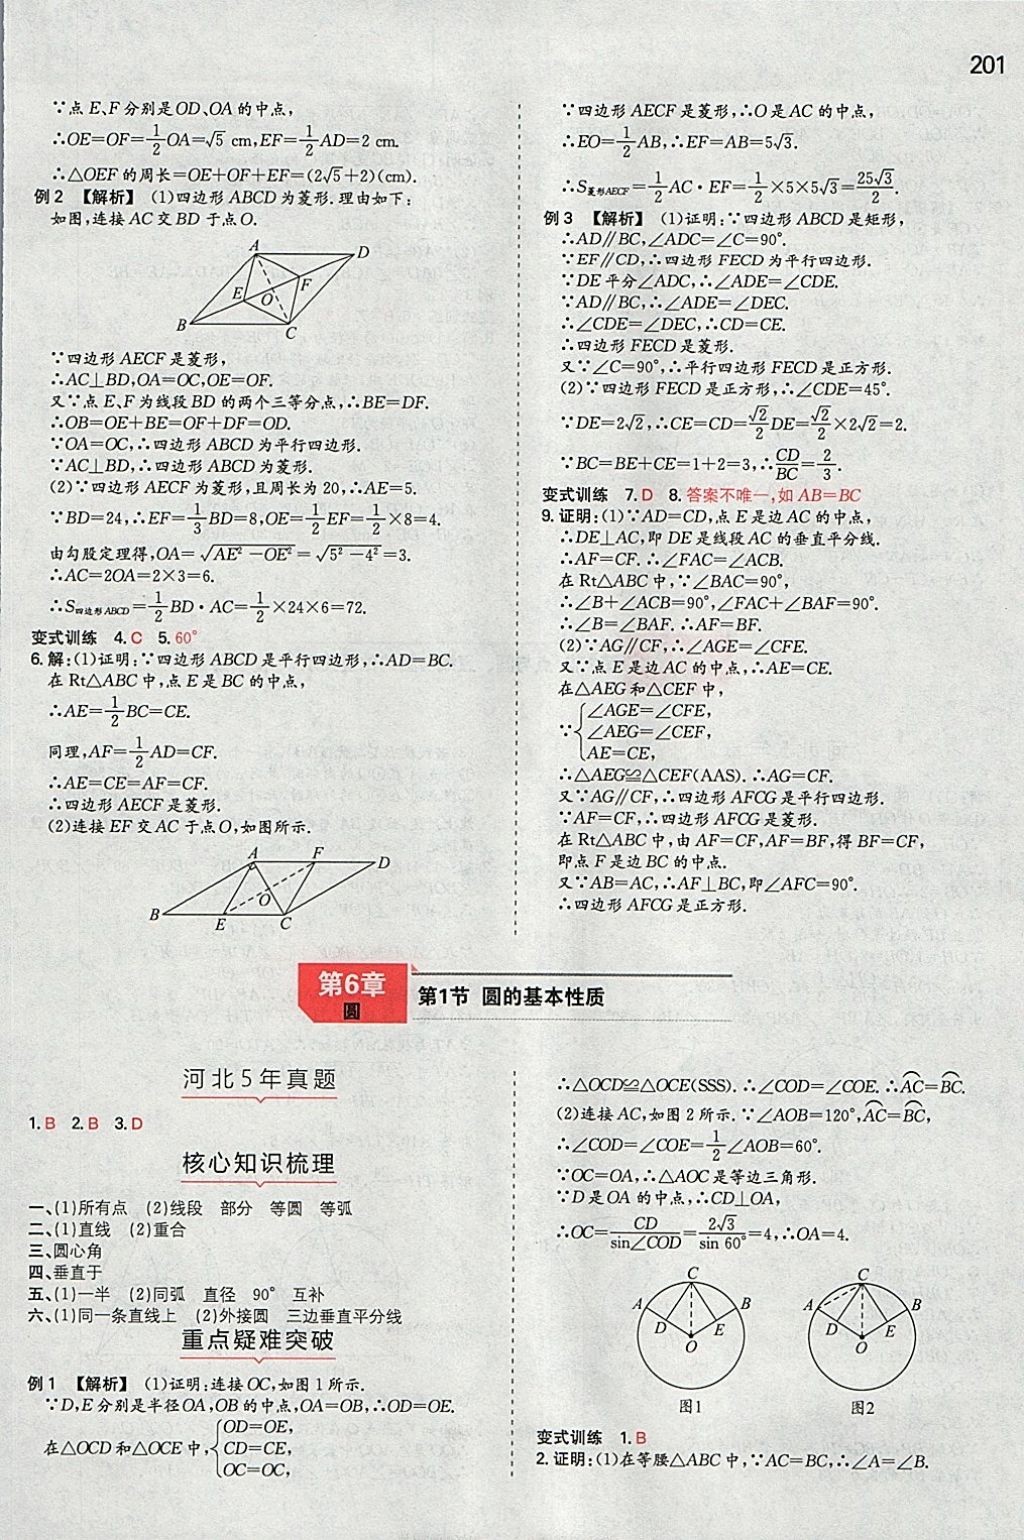 201
∵点E、F分别是OD、OA的中点，
∴OE=OF=1/2OA=√5 cm,EF=1/2AD=2 cm.
∴△OEF的周长=OE+OF+EF=(2√5+2)(cm).
例2 【解析】 (1)四边形ABCD为菱形.理由如下：
如图,连接AC交BD于点O.
A
D
E
O
F
B
C
∵四边形AECF是菱形，
∴AC⊥BD,OA=OC,OE=OF.
又∵点E、F为线段BD的两个三等分点,∴BE=DF.
∴OB=OE+BE=OF+DF=OD.
∵OA=OC,∴四边形ABCD为平行四边形.
∵AC⊥BD,∴四边形ABCD为菱形.
(2)∵四边形AECF为菱形,且周长为20,∴AE=5.
∵BD=24,∴EF=1/3BD=8,OE=1/2EF=1/2×8=4.
由勾股定理得,OA=√(AE²-OE²)=√(5²-4²)=3.
∴AC=2OA=2×3=6.
∴S四边形ABCD=1/2BD·AC=1/2×24×6=72.
变式训练 4.C 5.60°
6.解:(1)证明:∵四边形ABCD是平行四边形,∴AD=BC.
在Rt△ABC中,点E是BC的中点，
∴AE=1/2BC=CE.
同理,AF=1/2AD=CF.
∴AE=CE=AF=CF.
∴四边形AECF是菱形.
(2)连接EF交AC于点O,如图所示.
A
F
D
O
B
E
C
∵四边形AECF是菱形,∴O是AC的中点，
∴EO=1/2AB,∴EF=AB=5√3.
∴S菱形AECF=1/2AC·EF=1/2×5×5√3=25√3/2.
例3 【解析】 (1)证明:∵四边形ABCD是矩形，
∴AD∥BC,∠ADC=∠C=90°.
∵EF∥CD,∴四边形FECD为平行四边形.
∵DE平分∠ADC,∴∠ADE=∠CDE.
∵AD∥BC,∴∠ADE=∠DEC.
∴∠CDE=∠DEC,∴CD=CE.
∴四边形FECD是菱形.
又∵∠C=90°,∴平行四边形FECD是正方形.
(2)∵四边形FECD是正方形,∴∠CDE=45°.
∵DE=2√2,∴CE=CD=√2/2DE=√2/2×2√2=2.
∵BC=BE+CE=1+2=3,∴CD/BC=2/3.
变式训练 7.D 8.答案不唯一,如AB=BC
9.证明:(1)∵AD=CD,点E是边AC的中点，
∴DE⊥AC,即DE是线段AC的垂直平分线.
∴AF=CF.∴∠FAC=∠ACB.
在Rt△ABC中,∵∠BAC=90°，
∴∠B+∠ACB=90°,∠FAC+∠BAF=90°.
∴∠B=∠BAF.∴AF=BF.
(2)∵AG∥CF,∴∠AGE=∠CFE.
又∵点E是边AC的中点,∴AE=CE.
在△AEG和△CEF中，
∵{∠AGE=∠CFE，
∠AEG=∠CEF，
AE=CE，
∴△AEG≌△CEF(AAS).∴AG=CF.
又∵AG∥CF,∴四边形AFCG是平行四边形.
∵AF=CF,∴四边形AFCG是菱形.
在Rt△ABC中,由AF=CF,AF=BF,得BF=CF，
即点F是边BC的中点.
又∵AB=AC,∴AF⊥BC,即∠AFC=90°.
∴四边形AFCG是正方形.
第6章
圆
第1节 圆的基本性质
河北5年真题
1.B 2.B 3.D
核心知识梳理
一、(1)所有点 (2)线段 部分 等圆 等弧
二、(1)直线 (2)重合
三、圆心角
四、垂直于
五、(1)一半 (2)同弧 直径 90° 互补
六、(1)同一条直线上 (2)外接圆 三边垂直平分线
重点疑难突破
例1 【解析】 (1)证明:连接OC,如图1所示.
∵D,E分别是半径OA,OB的中点,OA=OB,∴OD=OE.
在△OCD和△OCE中,{OD=OE，
CD=CE，
OC=OC，
∴△OCD≌△OCE(SSS).∴∠COD=∠COE.∴A͡C=B͡C.
(2)连接AC,如图2所示.∵∠AOB=120°,A͡C=B͡C，
∴∠COD=∠COE=1/2∠AOB=60°.
∵OC=OA,∴△AOC是等边三角形.
∵D是OA的中点,∴CD⊥OA，
∴OC=CD/sin∠COD=2√3/sin 60°=4,∴OA=4.
C
A
B
D
E
O
图1
C
A
B
D
E
O
图2
变式训练 1.B
2.证明:(1)在等腰△ABC中,∵AC=BC,∴∠A=∠B.